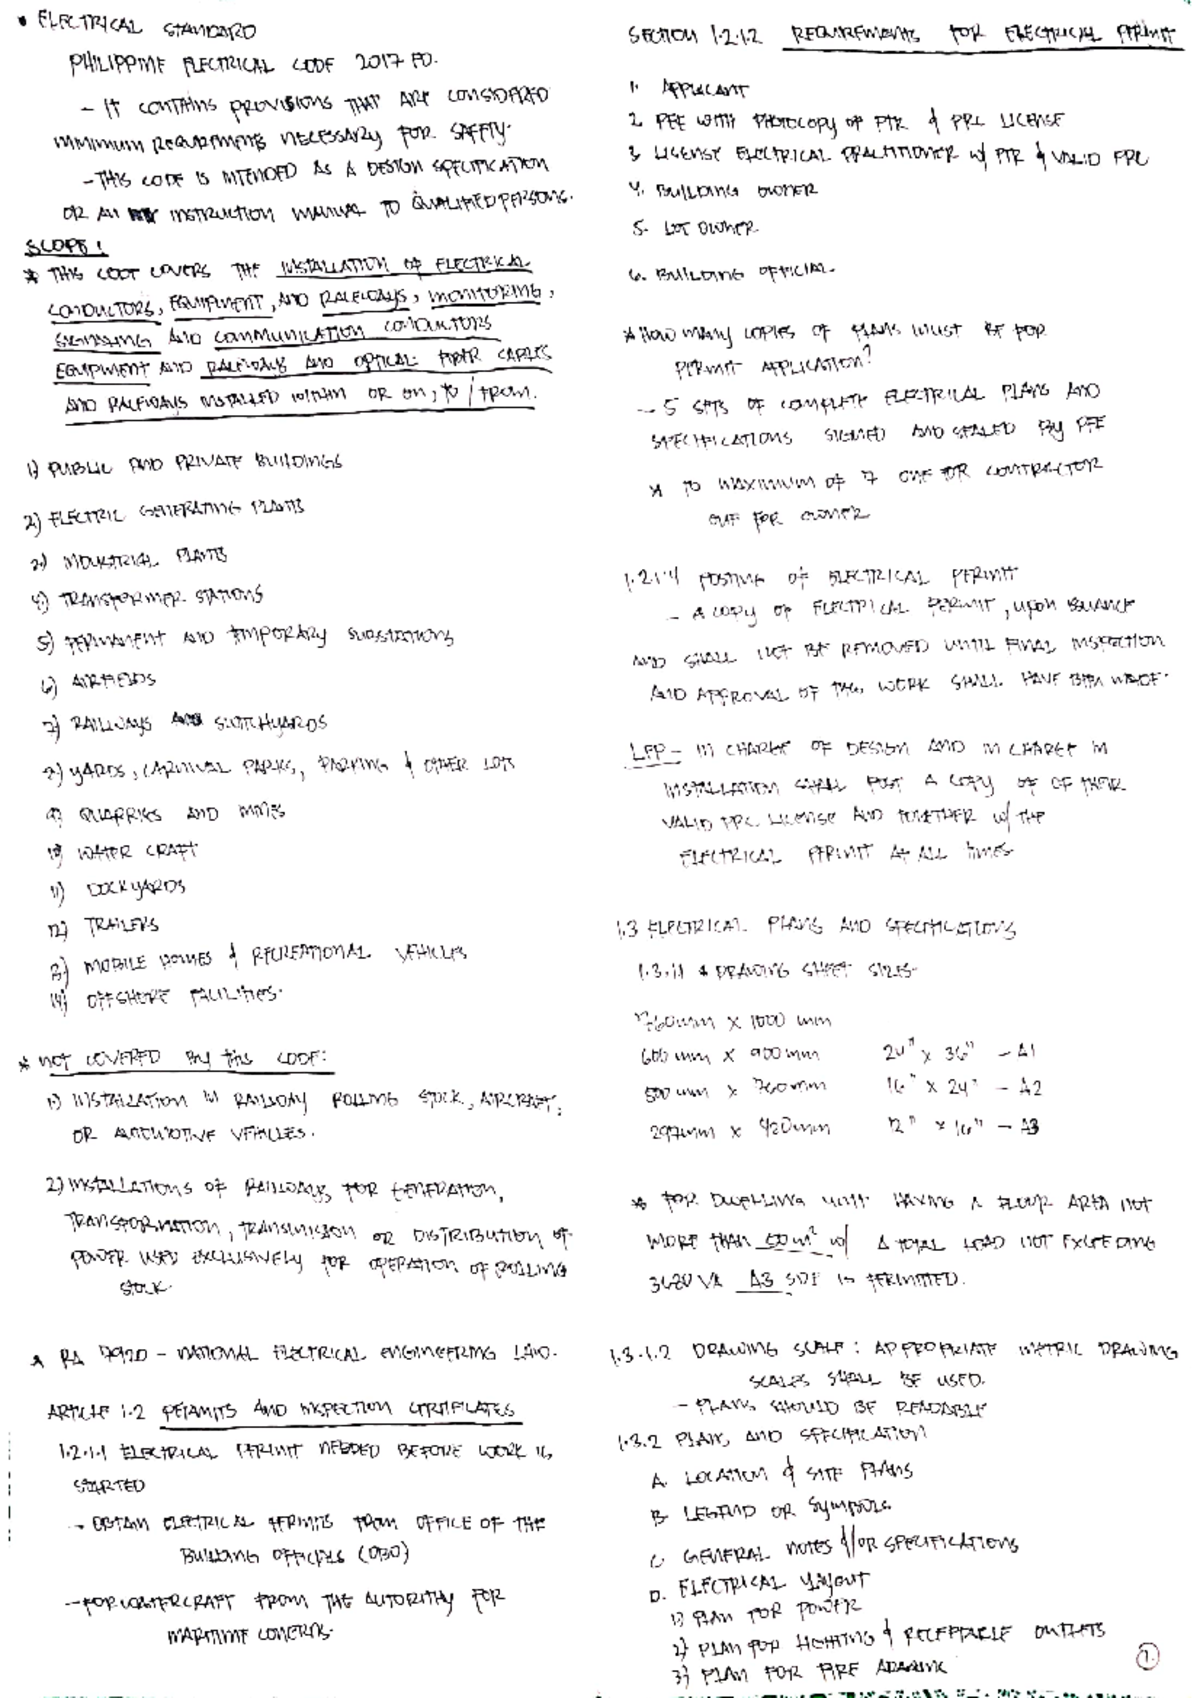 • ELECTRICAL STANDARD
PHILIPPINE ELECTRICAL CODE 2017 ED.
- IT CONTAINS PROVISIONS THAT ARE CONSIDERED
MINIMUM REQUIREMENTS NECESSARY FOR SAFETY.
- THIS CODE IS INTENDED AS A DESIGN SPECIFICATION
OR AN INSTRUCTION MANUAL TO QUALIFIED PERSONS.
SCOPE:
* THIS CODE COVERS THE INSTALLATION OF ELECTRICAL
CONDUCTORS, EQUIPMENT, AND RACEWAYS, MONITORING,
SIGNALING AND COMMUNICATION CONDUCTORS
EQUIPMENT AND RACEWAYS AND OPTICAL FIBER CABLES
AND RACEWAYS INSTALLED WITHIN OR ON, TO / FROM.
1) PUBLIC AND PRIVATE BUILDINGS
2) ELECTRIC GENERATING PLANTS
3) INDUSTRIAL PLANTS
4) TRANSFORMER STATIONS
5) PERMANENT AND TEMPORARY SUBSTATIONS
6) AIRFIELDS
7) RAILWAYS AND SWITCHYARDS
8) YARDS, CARNIVAL PARKS, PARKING & OTHER LOTS
9) QUARRIES AND MINES
10) WATER CRAFT
11) DOCKYARDS
12) TRAILERS
13) MOBILE HOMES & RECREATIONAL VEHICLES
14) OFFSHORE FACILITIES.
* NOT COVERED BY THIS CODE:
1) INSTALLATION IN RAILWAY ROLLING STOCK, AIRCRAFT,
OR AUTOMOTIVE VEHICLES.
2) INSTALLATIONS OF RAILWAYS FOR GENERATION,
TRANSFORMATION, TRANSMISSION OR DISTRIBUTION OF
POWER USED EXCLUSIVELY FOR OPERATION OF ROLLING
STOCK.
* RA 7920 - NATIONAL ELECTRICAL ENGINEERING LAW.
ARTICLE 1.2 PERMITS AND INSPECTION CERTIFICATES
1.2.1.1 ELECTRICAL PERMIT NEEDED BEFORE WORK IS
STARTED
- OBTAIN ELECTRICAL PERMITS FROM OFFICE OF THE
BUILDING OFFICIALS (OBO)
- FOR WATERCRAFT FROM THE AUTORITHY FOR
MARITIME CONCERNS.
SECTION 1.2.1.2 REQUIREMENTS FOR ELECTRICAL PERMIT
1. APPLICANT
2. PEE WITH PHOTOCOPY OF PTR & PRC LICENSE
3. LICENSE ELECTRICAL PRACTITIONER W/ PTR & VALID PRC
4. BUILDING OWNER
5. LOT OWNER
6. BUILDING OFFICIAL.
* HOW MANY COPIES OF PLANS MUST BE FOR
PERMIT APPLICATION?
- 5 SETS OF COMPLETE ELECTRICAL PLANS AND
SPECIFICATIONS SIGNED AND SEALED BY PEE
* TO MAXIMUM OF 7 ONE FOR CONTRACTOR
ONE FOR OWNER
1.2.1.4 POSTING OF ELECTRICAL PERMIT
- A COPY OF ELECTRICAL PERMIT, UPON ISSUANCE
AND SHALL NOT BE REMOVED UNTIL FINAL INSPECTION
AND APPROVAL OF THIS WORK SHALL HAVE BEEN MADE.
LEP - IN CHARGE OF DESIGN AND IN CHARGE IN
INSTALLATION SHALL POST A COPY OF OF THEIR
VALID PRC LICENSE AND TOGETHER W/ THE
ELECTRICAL PERMIT AT ALL TIMES.
1.3 ELECTRICAL PLANS AND SPECIFICATIONS
1.3.1.1 * DRAWING SHEET SIZES.
760mm x 1000 mm
600 mm x 900mm 24" x 36" - A1
500 mm x 760mm 16" x 24" - A2
297mm x 420mm 12" x 16" - A3
* FOR DWELLING UNIT HAVING A FLOOR AREA NOT
MORE THAN 50 m² W/ A TOTAL LOAD NOT EXCEEDING
3680 VA A3 SIZE IS PERMITTED.
1.3.1.2 DRAWING SCALE: APPROPRIATE METRIC DRAWING
SCALES SHALL BE USED.
- PLANS SHOULD BE READABLE
1.3.2 PLANS AND SPECIFICATION
A. LOCATION & SITE PLANS
B. LEGEND OR SYMBOLS
C. GENERAL NOTES &/OR SPECIFICATIONS
D. ELECTRICAL LAYOUT
1) PLAN FOR POWER
2) PLAN FOR LIGHTING & RECEPTACLE OUTLETS
3) PLAN FOR FIRE ALARM
1.